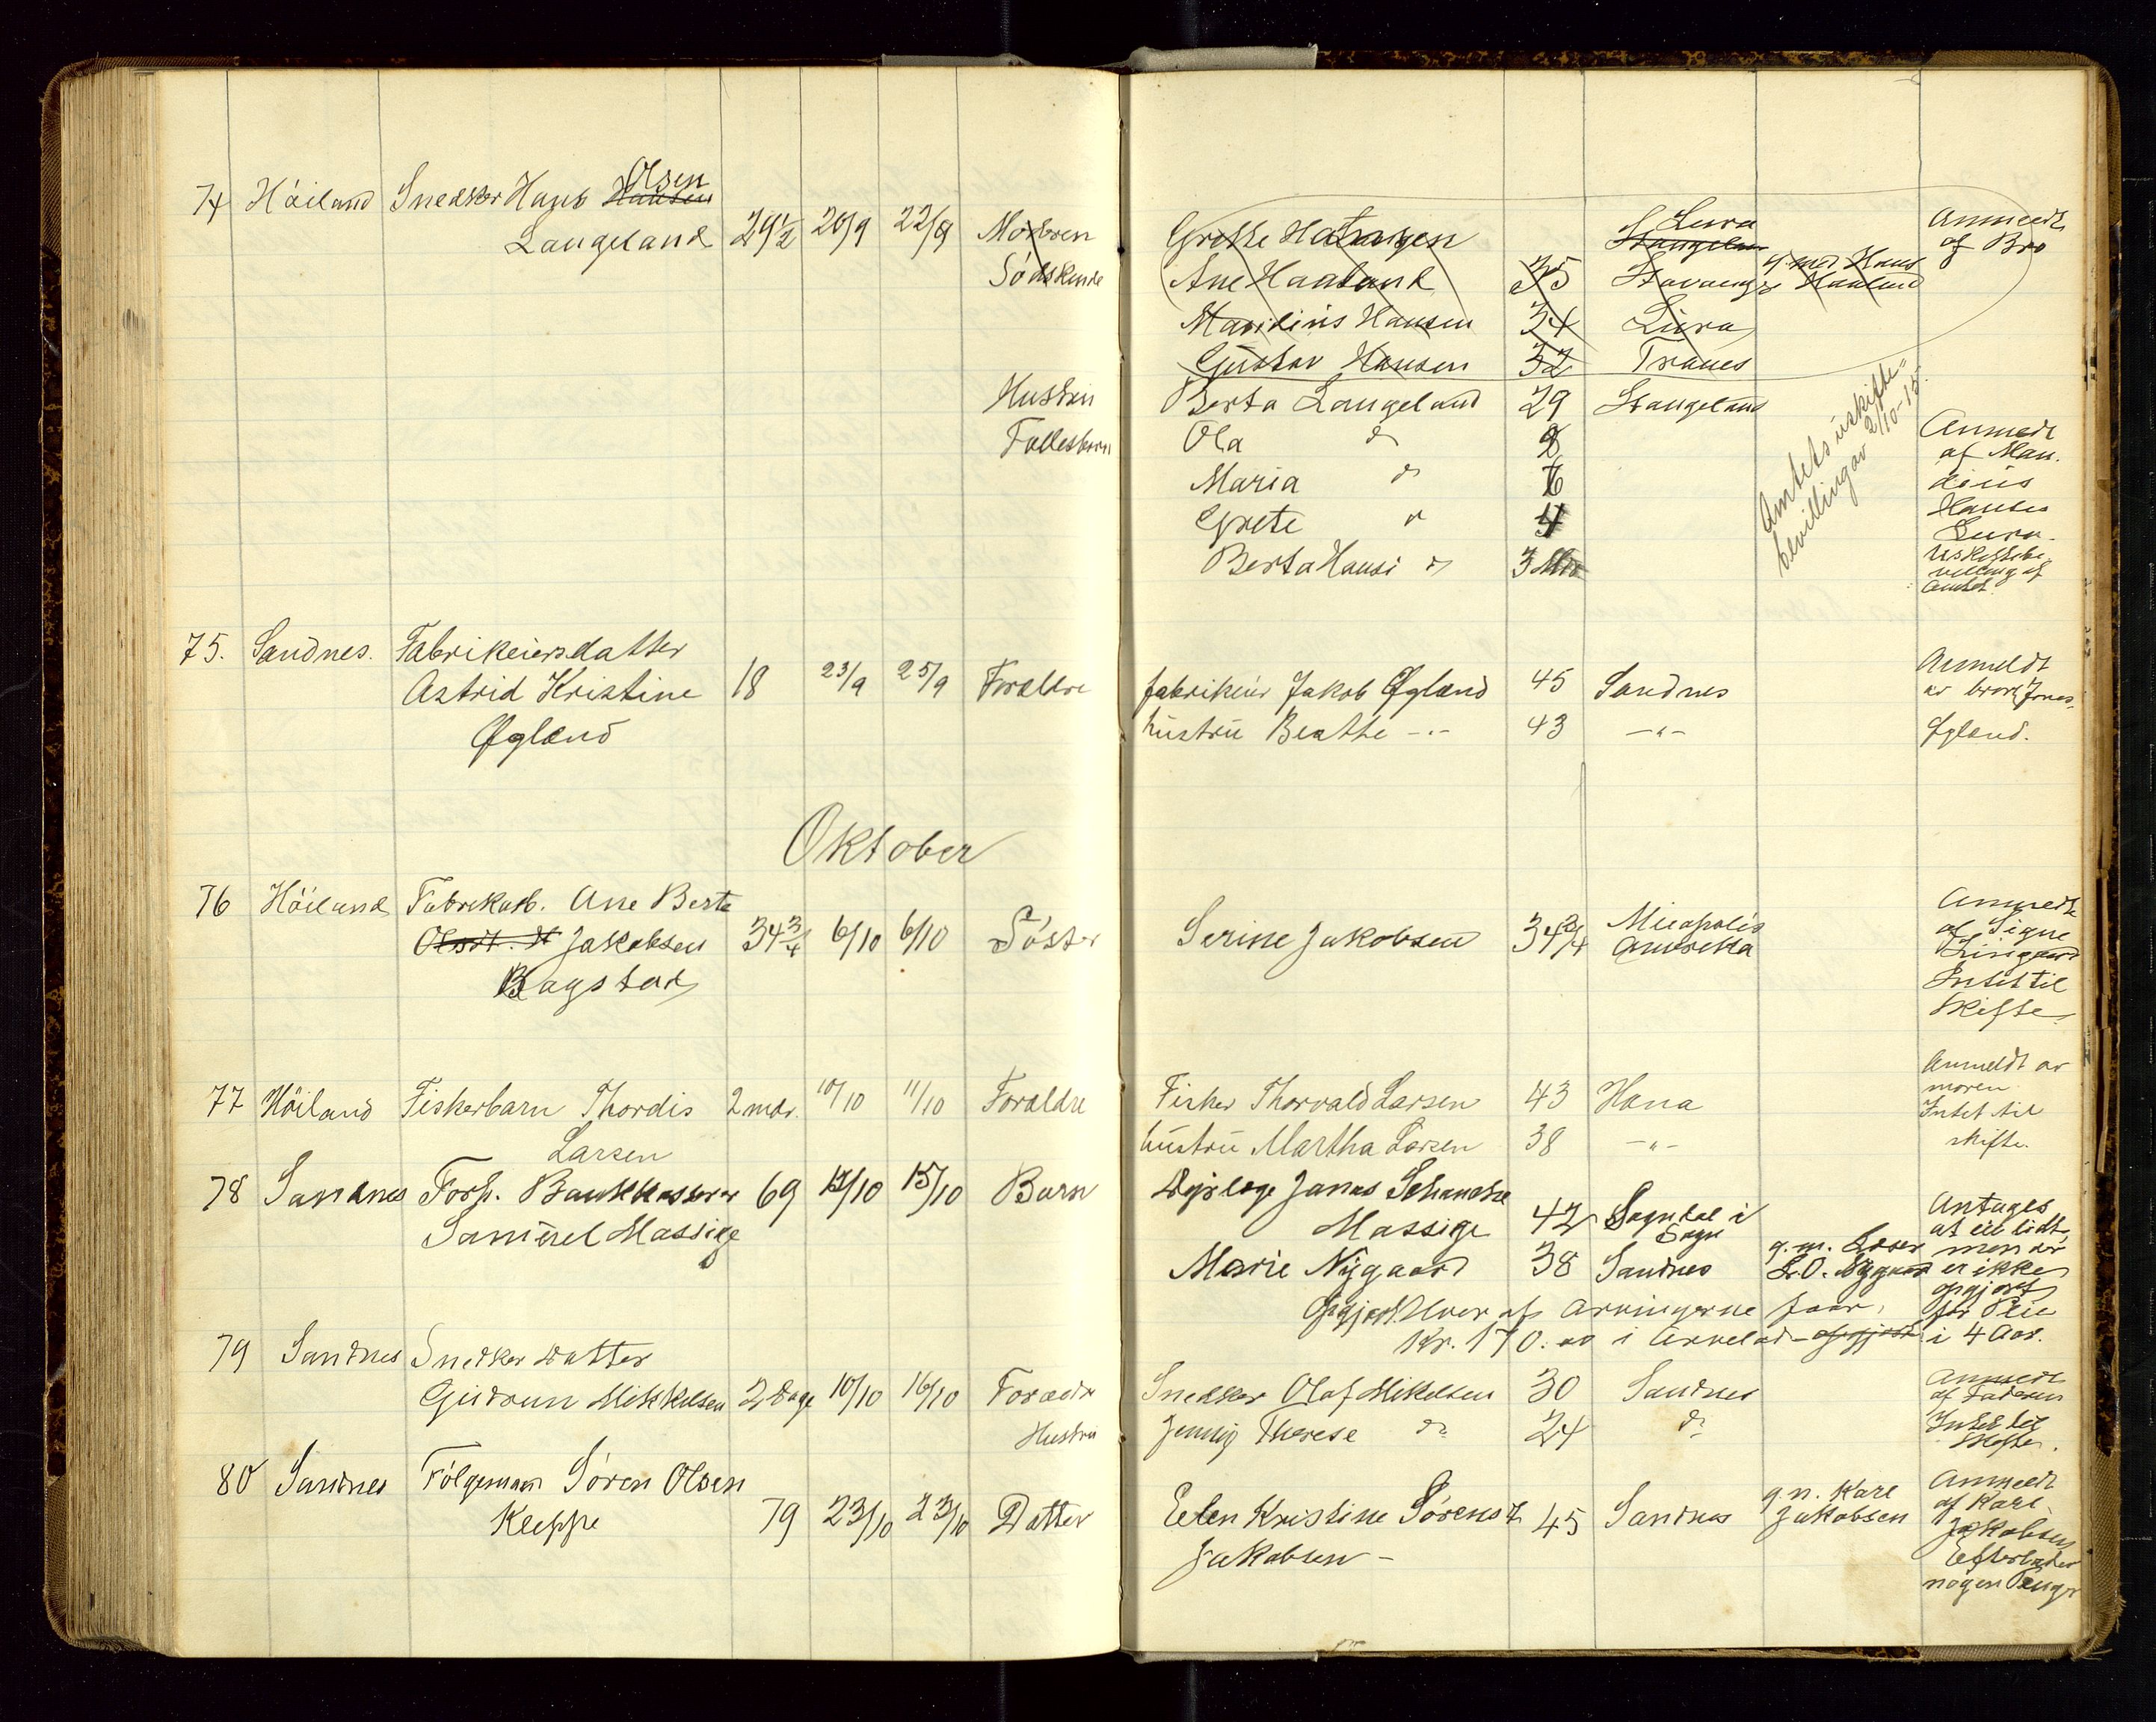 74 Höiland Snedker Hans Hansen Olsen
Langeland 29½ 20/9 22/9 Moren
Södskende
Hustru
Fællesbørn
75. Sandnes. Fabrikeiersdatter
Astrid Kristine 18 23/9 25/9 Forældre
Øglænd
Oktober
76 Höiland Fabrikarb. Ane Berta
Jakobsen 34¾ 6/10 6/10 Söster
Bagstad
77 Höiland Fiskerbarn Thordis 2 mdr. 10/10 11/10 Forældre
Larsen
78 Sandnes Forh. Bankkasserer 69 15/10 Barn
Samuel Massige
79 Sandnes Snedker datter
Gudrun Mikkelsen 2 Dage 10/10 16/10 Forældre
Hustru
80 Sandnes Fölgemann Sören Olsen
Kleppe 79 23/10 23/10 Datter
Lura
Stangeland
Anmeldt
af Bro
Ane Haaland 35 Stavanger g. med Hans Haaland
Mandius Hansen 34 Lura
Gustav Hansen 32 Tranes
Berta Langeland 29 Stangeland
Ola do 8
Maria do 6
Grete do 4
Berta Hansi do 3 Mdr
Amtets uskifte-
bevilling av 2/10-15.
Anmeldt
af Man-
dius
Hansen
Lura.
Uskiftebe-
villing af
Amtet.
fabrikeier Jakob Øglænd 45 Sandnes
hustru Beathe -„- 43 -„-
Anmeldt
av bror Jonas
Øgland.
Serine Jakobsen 34¾ Mineapolis
Amerika
Anmeldt
af Signe
Lingaard
Intet til
Skifte
Fisker Thorvald Larsen 43 Hana
hustru Martha Larsen 38 -„-
Anmeldt av
moren
Intet til
skifte
Dyrlæge Jonas Schancke
Massige 42 Sogndal i
Sogn
Marie Nygaard 38 Sandnes g. m. L. O. Nygaard
Opgjort. Hver af Arvingerne faar
Kr. 170.00 i Arvelod
Antages
at eie lidt,
men der
er ikke
opgjort
for Peie
i 4 Aar.
Snedker Olaf Mikkelsen 30 Sandnes
Jenny Therese do 24 do
Anmeldt
af Faderen
Intet til
Skifte.
Elen Kristine Sörensd. 45 Sandnes g. m. Karl
Jakobsen
Jakobsen -
Anmeldt
af Karl
Jakobsen
Efterlader
nogen Penger